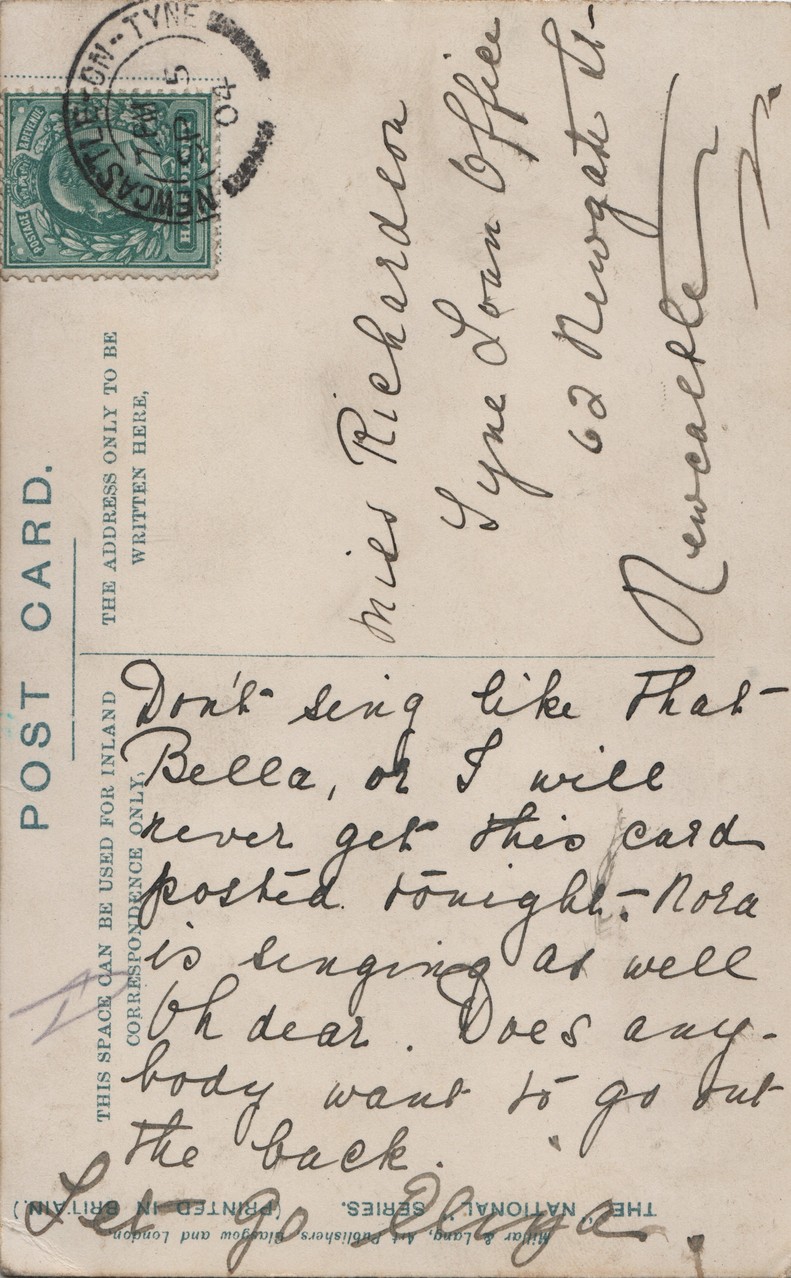 POST CARD.
THE ADDRESS ONLY TO BE
WRITTEN HERE,
THIS SPACE CAN BE USED FOR INLAND
CORRESPONDENCE ONLY,
NEWCASTLE-ON-TYNE
7 PM
SP 5
04
POSTAGE
& REVENUE
Miss Richardson
Tyne Loan Office
62 Newgate St
Newcastle
Don't sing like that
Bella, or I will
never get this card
posted tonight - Nora
is singing as well
Oh dear. Does any-
body want to go out
the back.
Let go Eliza.
THE "NATIONAL" SERIES. (PRINTED IN BRITAIN.)
Millar & Lang, Art Publishers Glasgow and London